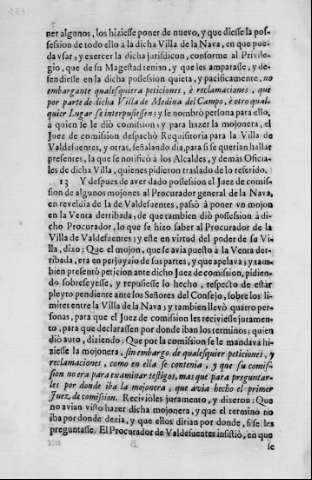 ner algunos, los hiziesse poner de nuevo, y que diesse la pos-
session de todo ello à la dicha Villa de la Nava, en que pue-
da vsar, y exercer la dicha jurisdicion, conforme al Privile-
gio, que de su Magestad tenian, y que les amparasse, y de-
fendiesse en la dicha possession quieta, y pacificamente, no
embargante qualesquiera peticiones, è reclamaciones, que
por parte de dicha Villa de Medina del Campo, è otro qual-
quier Lugar se interpusiessen; y se nombrò persona para ello,
à quien se le diò comission; y para hazer la mojonera, el
Juez de comission despachò Requisitoria para la Villa de
Valdefuentes, y otras, señalando dia, para si se querian hallar
presentes, la que se notificò à los Alcaldes, y demàs Oficia-
les de dicha Villa, quienes pidieron traslado de lo referido.
13 Y despues de aver dado possession el Juez de comis-
sion de algunos mojones al Procurador general de la Nava,
en reveldia de la de Valdefuentes, passò à poner vn mojon
en la Venta derribada, de que tambien diò possession à di-
cho Procurador, lo que se hizo saber al Procurador de la
Villa de Valdefuentes; y este en virtud del poder de su Vi-
lla, dixo: Que el mojon, que se avia puesto à la Venta der-
ribada, era en perjuyzio de sus partes, y que apelava; y tam-
bien presentò peticion ante dicho Juez de comission, pidien-
do sobreseyesse, y repusiesse lo hecho, respecto de estàr
pleyto pendiente ante los Señores del Consejo, sobre los li-
mites entre la Villa de la Nava; y tambien llevò quatro per-
sonas, para que el Juez de comission les reciviesse juramen-
to, para que declarassen por donde iban los terminos; quien
diò auto, diziendo: Que por la comission se le mandava hi-
ziesse la mojonera, sin embargo de qualesquier peticiones, y
reclamaciones, como en ella se contenia, y que su comis-
sion no era para examinar testigos, mas que para preguntar-
les por donde iba la mojonera, que avia hecho el primer
Juez de comission. Reciviòles juramento, y dixeron: Que
no avian visto hazer dicha mojonera, y que el termino no
iba por donde dezia, y que ellos dirian por donde, si se les
preguntasse. El Procurador de Valdefuentes insistiò, en que
se